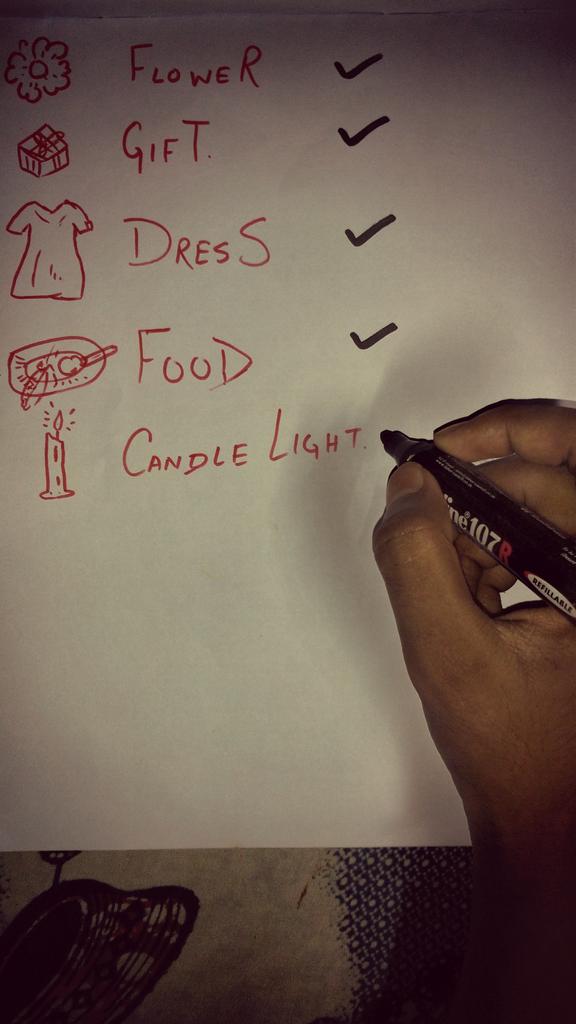 FLOWER ✓
GIFT. ✓
DRESS ✓
FOOD ✓
CANDLE LIGHT.
line 107R
REFILLABLE